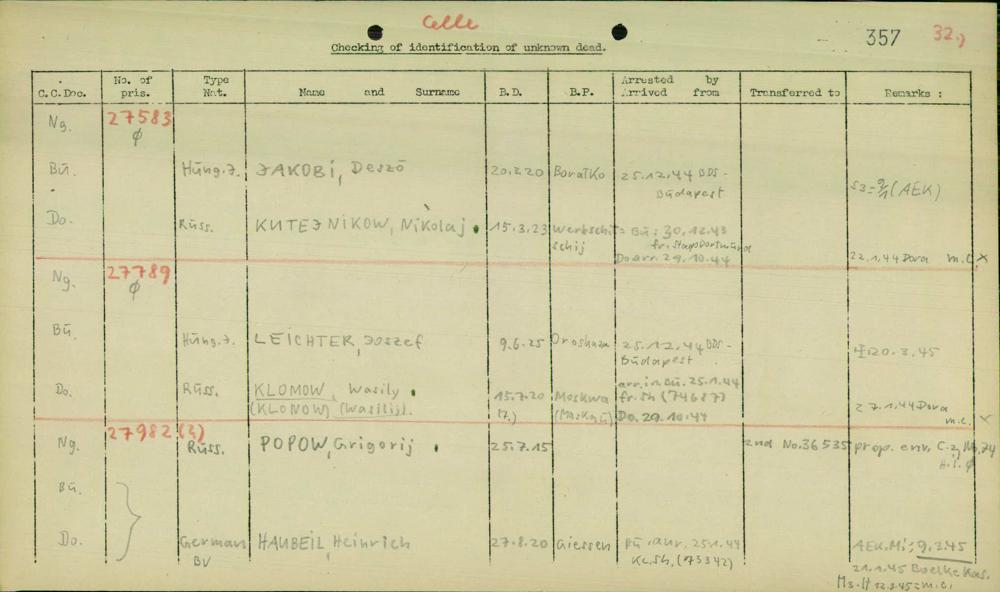 Celle
Checking of identification of unknown dead.
357 32.)
C.C.Doc. No. of pris. Type Nat. Name and Surname B.D. B.P. Arrested by Arrived from Transferred to Remarks :
Ng. 27583 Ø
Bu. Hung.J. JAKOBI, Deszö 20.2.20 25.12.44 BDS-
Budapest (AEK)
Do. Russ. KUTEJNIKOW, Nikolaj 15.3.23 Werbschit= Bu: 30.12.43
schij fr. Stapo Dortmund
Do arr. 29.10.44 22.1.44 Dora m.c. X
Ng. 27789 Ø
Bu. Hung.J. LEICHTER, Joszef 9.6.25 Oroshaza 25.12.44 BDS-
Budapest 20.3.45
Do. Russ. KLOMOW, Wasily 15.7.20 Moskwa arr. in Bu. 25.1.44
(KLONOW) (Wasilij). (7.) (Moskau) fr. Sh (74687)
Do. 29.10.44 27.1.44 Dora m.c. X
Ng. 27982 (2) Russ. POPOW, Grigorij 25.7.15 2nd No. 36535 prop. env.
Bu.
Do. German HAUBEIL, Heinrich 27.8.20 Giessen Bu. arr. 25.1.44 AEK.Mi: 9.2.45
BV (73342) 21.1.45 Boelke Kas.